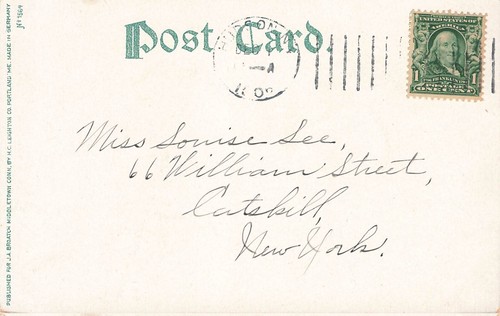 Post Card.
HUDSON
A
UNITED STATES OF AMERICA
1 FRANKLIN 1
POSTAGE
ONE CENT
Miss Louise Lee,
66 William Street,
Catskill,
New York.
PUBLISHED FOR J.A. BROATCH MIDDLETOWN CONN. BY H.C. LEIGHTON CO. PORTLAND ME. MADE IN GERMANY